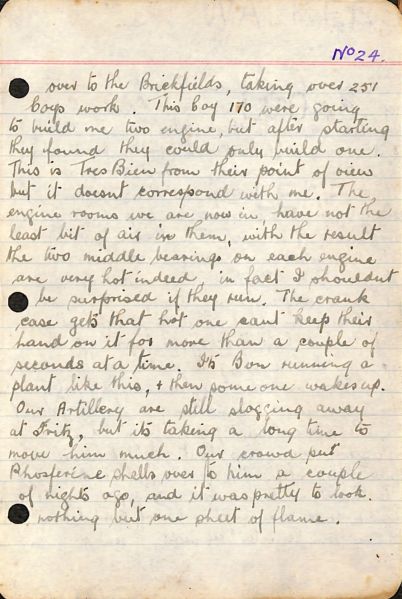 No 24.
over to the Brickfields, taking over 251
Coys work. This Coy 170 were going
to build me two engine, but after starting
they found they could only build one.
This is Tres Bien from their point of view
but it doesnt correspond with me. The
engine rooms we are now in, have not the
least bit of air in them, with the result
the two middle bearings on each engine
are very hot indeed in fact I shouldnt
be surprised if they run. The crank
case gets that hot one cant keep their
hand on it for more than a couple of
seconds at a time. Its Bon running a
plant like this, + then some one wakes up.
Our Artillery are still slogging away
at Fritz, but its taking a long time to
move him much. Our crowd put
Phosferine shells over to him a couple
of nights ago, and it was pretty to look.
nothing but one sheet of flame.